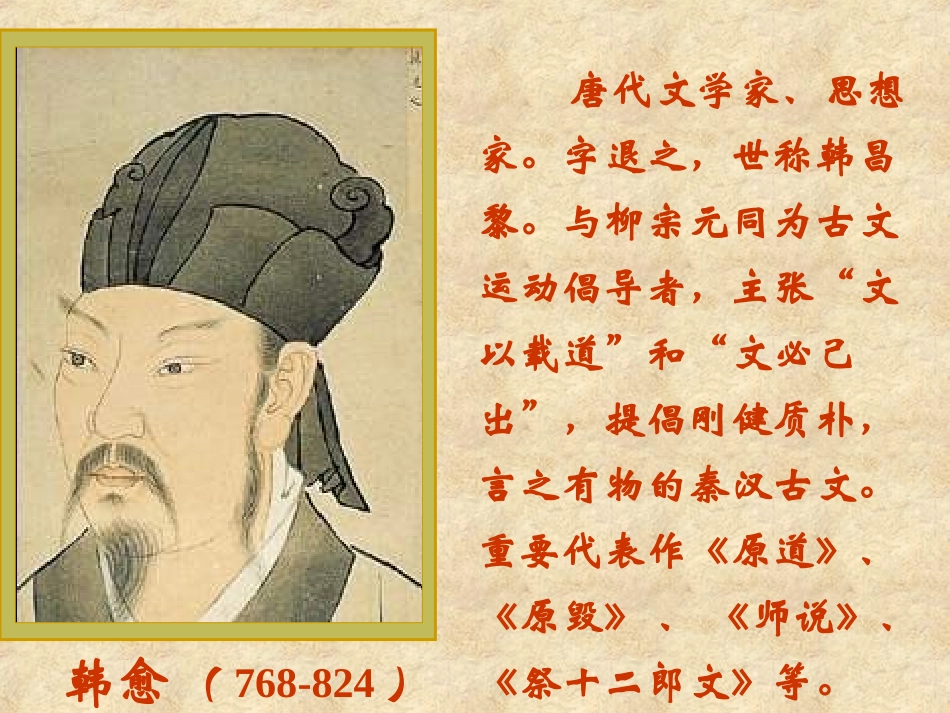 唐代文学家、思想
家。字退之，世称韩昌
黎。与柳宗元同为古文
运动倡导者，主张“文
以载道”和“文必己
出”，提倡刚健质朴，
言之有物的秦汉古文。
重要代表作《原道》、
《原毁》、《师说》、
《祭十二郎文》等。
韩愈（768-824）